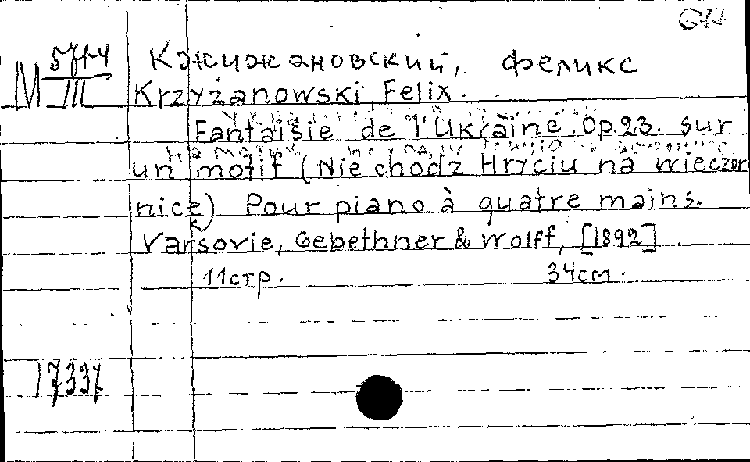 М 5714
III
Кжижановский, Феликс
Krzyżanowski Felix.
Fantaisie de l'Ukraine. Op.23. sur
un motif (Nie chodź Hryciu na wieczor
nice) Pour piano à quatre mains.
Varsovie, Gebethner & Wolff, [1892]
11стр. 34см.
17337